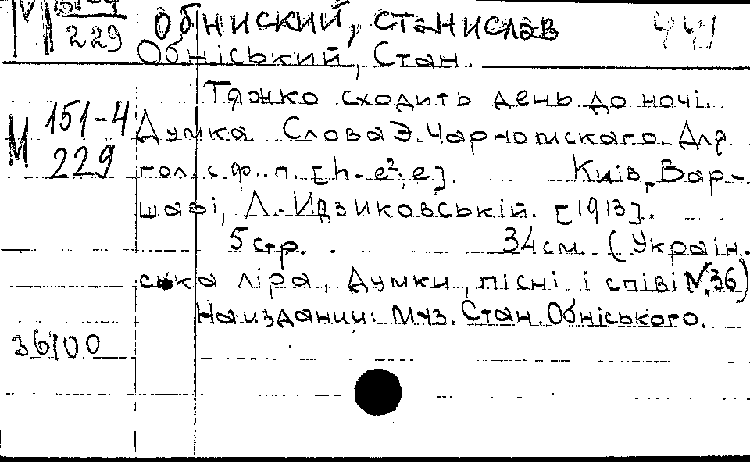 М 151-4 Обниский, Станислав
229
Обніський, Стан.
Тяжко сходить день до ночі.
М 151-4 Думка Слова Э. Чарнотскаго. Для
229 гол. с ф.-п. [h-e², e]. Київ, Вар-
шаві, Л. Идзиковській. [1913].
5 стр. 34 см. (Україін.
ська ліра, Думки, пісні і співі №36)
На издании: Муз. Стан. Обніського.
36/00